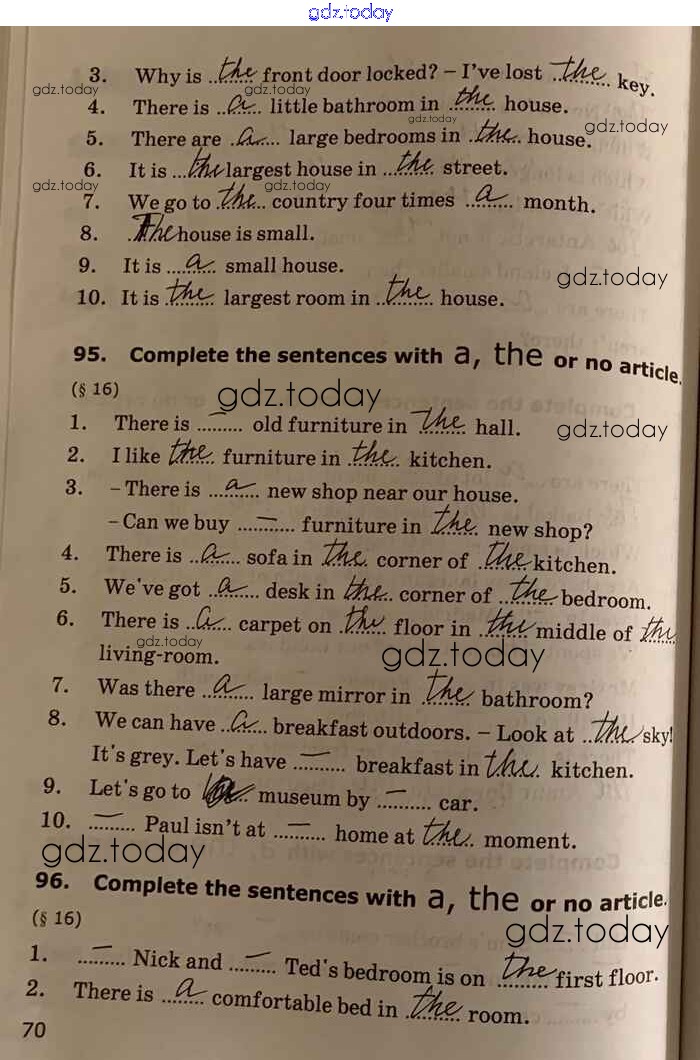 gdz.today
3. Why is ..the.. front door locked? – I've lost ..the.. key.
gdz.today gdz.today
4. There is ..a.. little bathroom in ..the.. house.
gdz.today gdz.today
5. There are ..a.. large bedrooms in ..the.. house.
6. It is ..the.. largest house in ..the.. street.
gdz.today gdz.today
7. We go to ..the.. country four times ..a.. month.
8. ..The.. house is small.
9. It is ..a.. small house.
gdz.today
10. It is ..the.. largest room in ..the.. house.
95. Complete the sentences with a, the or no article.
(§ 16)
gdz.today
1. There is ..–.. old furniture in ..the.. hall.
gdz.today
2. I like ..the.. furniture in ..the.. kitchen.
3. – There is ..a.. new shop near our house.
– Can we buy ..–.. furniture in ..the.. new shop?
4. There is ..a.. sofa in ..the.. corner of ..the.. kitchen.
5. We've got ..a.. desk in ..the.. corner of ..the.. bedroom.
6. There is ..a.. carpet on ..the.. floor in ..the.. middle of ..the..
gdz.today
living-room.
gdz.today
7. Was there ..a.. large mirror in ..the.. bathroom?
8. We can have ..a.. breakfast outdoors. – Look at ..the.. sky!
It's grey. Let's have ..–.. breakfast in ..the.. kitchen.
9. Let's go to museum by ..–.. car.
10. ..–.. Paul isn't at ..–.. home at ..the.. moment.
gdz.today
96. Complete the sentences with a, the or no article.
(§ 16)
gdz.today
1. ..–.. Nick and ..–.. Ted's bedroom is on ..the.. first floor.
2. There is ..a.. comfortable bed in ..the.. room.
70